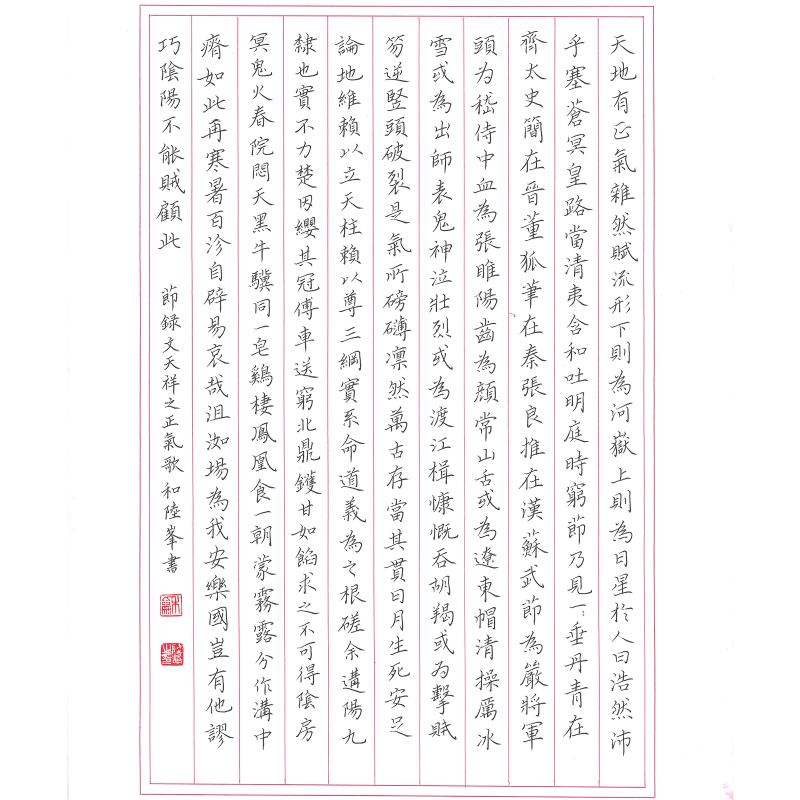 天地有正氣雜然賦流形下則為河嶽上則為日星於人曰浩然沛
乎塞蒼冥皇路當清夷含和吐明庭時窮節乃見一一垂丹青在
齊太史簡在晉董狐筆在秦張良推在漢蘇武節為嚴將軍
頭為嵇侍中血為張睢陽齒為顏常山舌或為遼東帽清操厲冰
雪或為出師表鬼神泣壯烈或為渡江楫慷慨吞胡羯或為擊賊
笏逆豎頭破裂是氣所磅礴凜然萬古存當其貫日月生死安足
論地維賴以立天柱賴以尊三綱實系命道義為之根磋余遘陽九
隸也實不力楚囚纓其冠傅車送窮北鼎鑊甘如餡求之不可得陰房
冥鬼火春院悶天黑牛驥同一皂鷄棲鳳凰食一朝蒙霧露分作溝中
瘠如此再寒暑百沴自辟易哀哉沮洳場為我安樂國豈有他謬
巧陰陽不能賊顧此 節録文天祥之正氣歌 和陸峯書